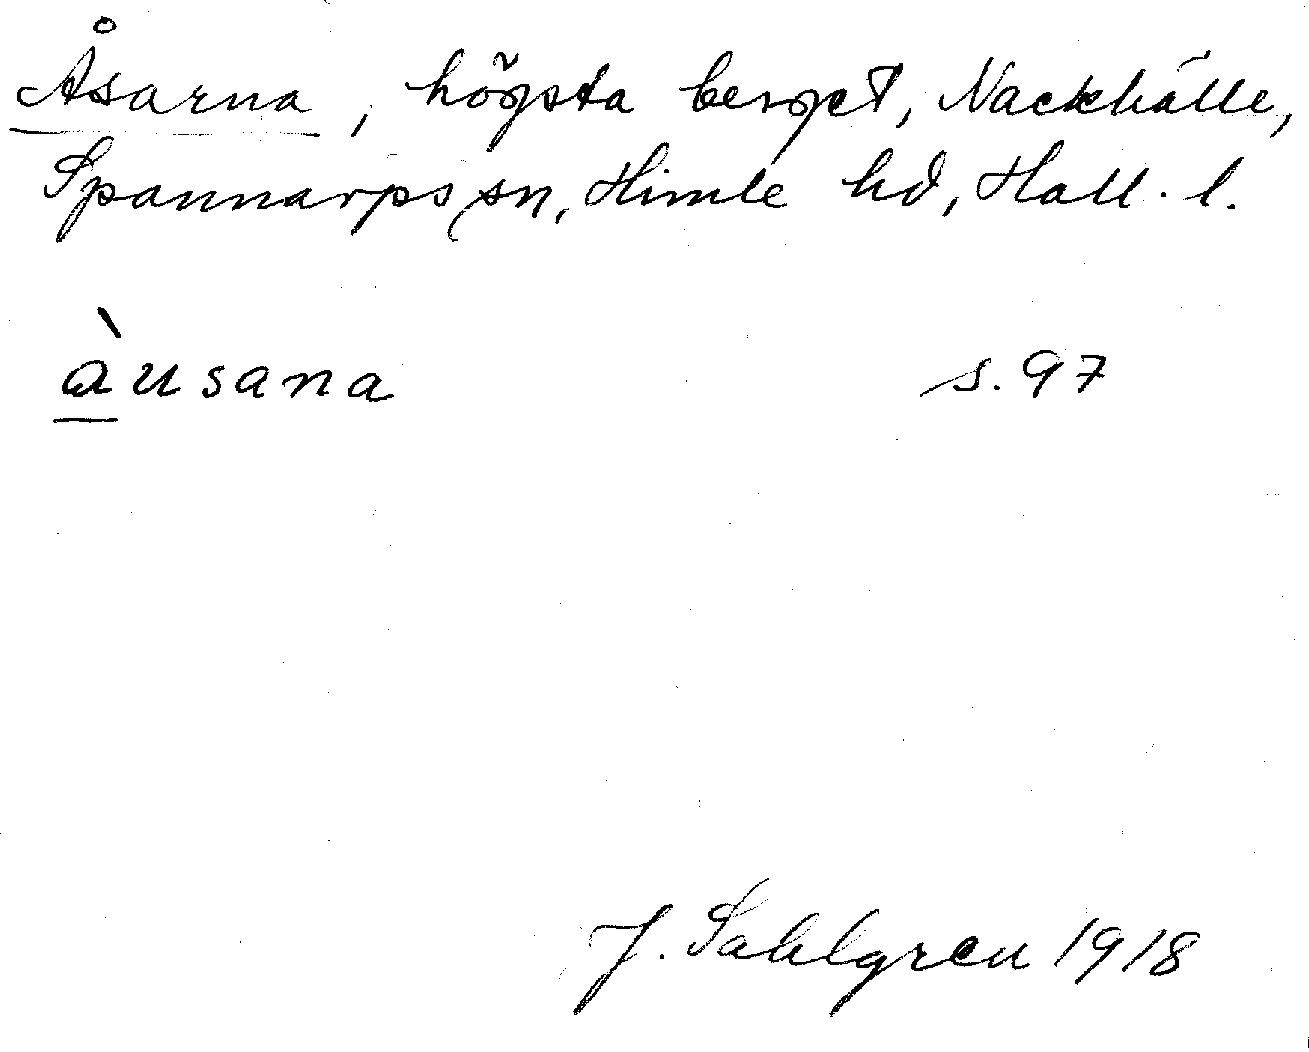 Åsarna, högsta berget, Nackhälle,
Spannarps sn, Himle hd, Hall. l.
àusana s. 97
J. Sahlgren 1918